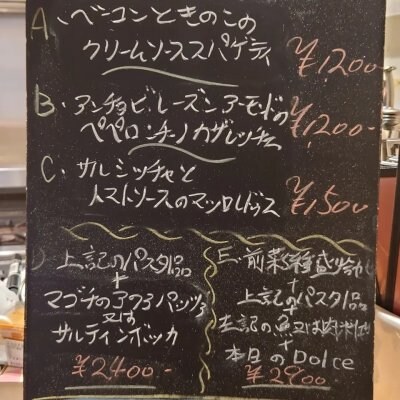 A、ベーコンときのこの
クリームソーススパゲティ ¥1200
B、アンチョビ、レーズン、アーモンドの
ペペロンチーノ カザレッチェ ¥1200-
C、サルシッチャと
トマトソースのマッロレドゥス ¥1500
D 上記のパスタ1品
+
マゴチのアクアパッツァ
又は
サルティンボッカ
¥2400-
E、前菜5種盛り合わせ
+
上記のパスタ1品
+
左記の魚又は肉料理
+
本日のDolce
¥2900